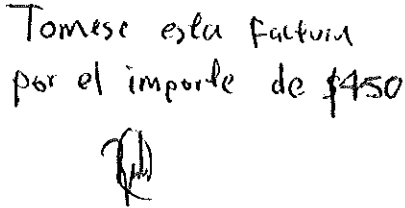 Tomese esta factura
por el importe de $450